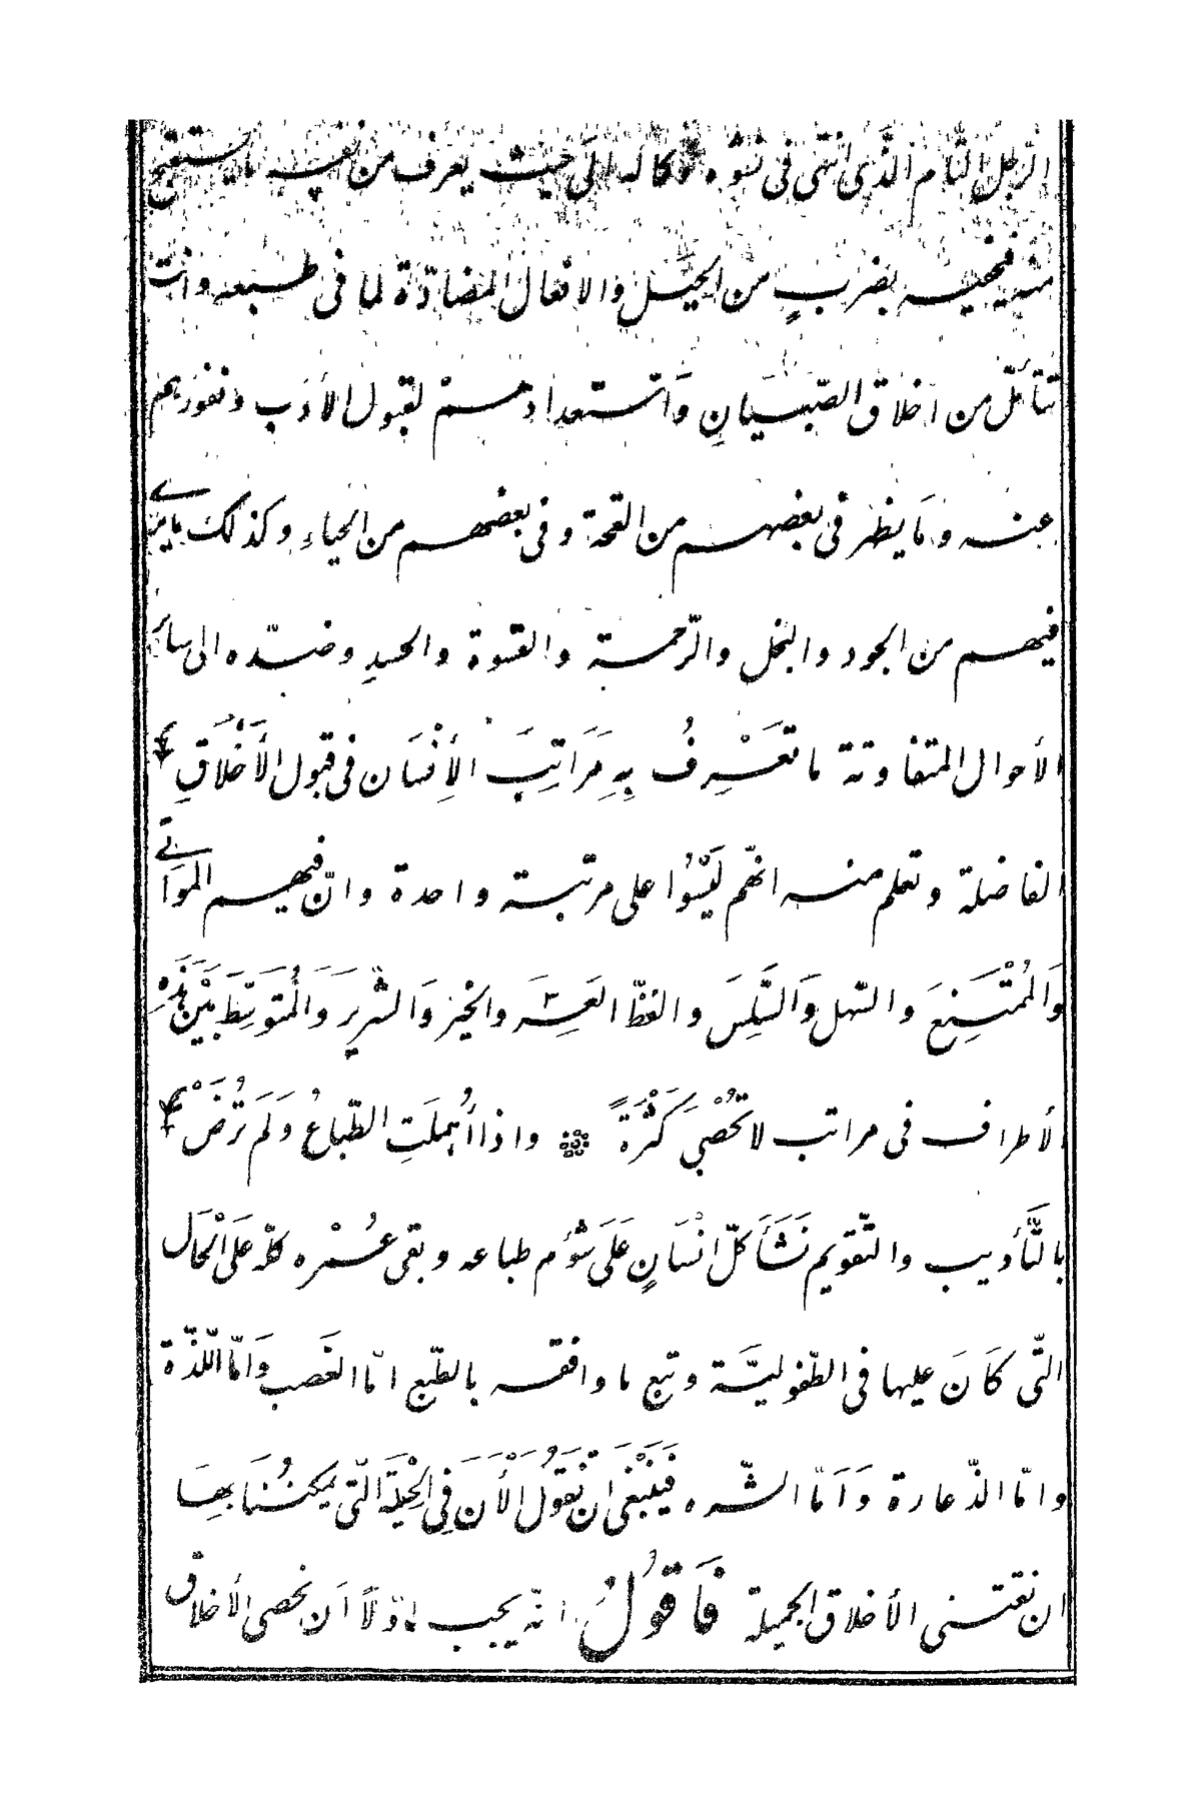 الرجل التام الذى انتهى فى نشوه وكماله الى حيث يعرف من نفسه ما يستقبح
منه فيخفيه بضربٍ من الحيل والافعال المضادّة لما فى طبعه وانت
تتأمّل من اخلاق الصّبيانِ وَاستعدادهمْ لقبول الأدَب ونفورهم
عنه وما يظهر فى بعضهم من القحة وفى بعضهم من الحياءِ وكذلك ما يرى
فيهم من الجود والبخل والرّحمة والقسوة والحسدِ وضدّه الى سائر
الأحوال المتفاوتة ما تعْرِفُ بِهِ مَرَاتِبَ الأِنْسَان فى قبول الأَخْلَاقِ
الفاضلة وتعلم منه انهّم لَيْسُوا على مرتبة واحدة وانّ فيهم المواتى
وَالمُمْتَنِعَ والسّهل وَالسَّلِسَ والفظّ العَسِرَ والخَيّرَ وَالشّرِيرَ وَالمُتَوَسِّطَ بَيْنَ هَذِهِ
الأطراف فى مراتب لا تُحْصَى كَثْرَةً واذا أُهمِلَتِ الطّباعُ وَلَمَ تُرَضْ
بالتَّأديب والتّقويم نَشَأَ كلّ انْسَانٍ عَلَى سُؤم طباعه وبقى عُمْره كلّه عَلَى الْحَال
التّى كَانَ عليها فى الطّفوليَّة وتبع ما وافقه بالطّبع امّا الغَضب وَامّا اللّذّة
وامّا الذّعارة وَاَمّا الشّره فَيَنْبَغى ان نَقُولَ الْأَنَ فِى الْحِيلَةِ الّتى يمكنُنَا بهَا
ان نقتنى الأخلاق الجميلة فَاقولُ انّه يجب اوّلاً اَن نحصى الأخلاق